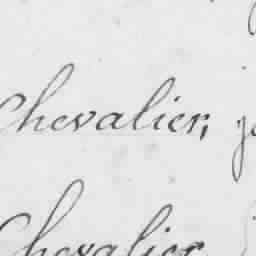 Chevalier,
Chevalier